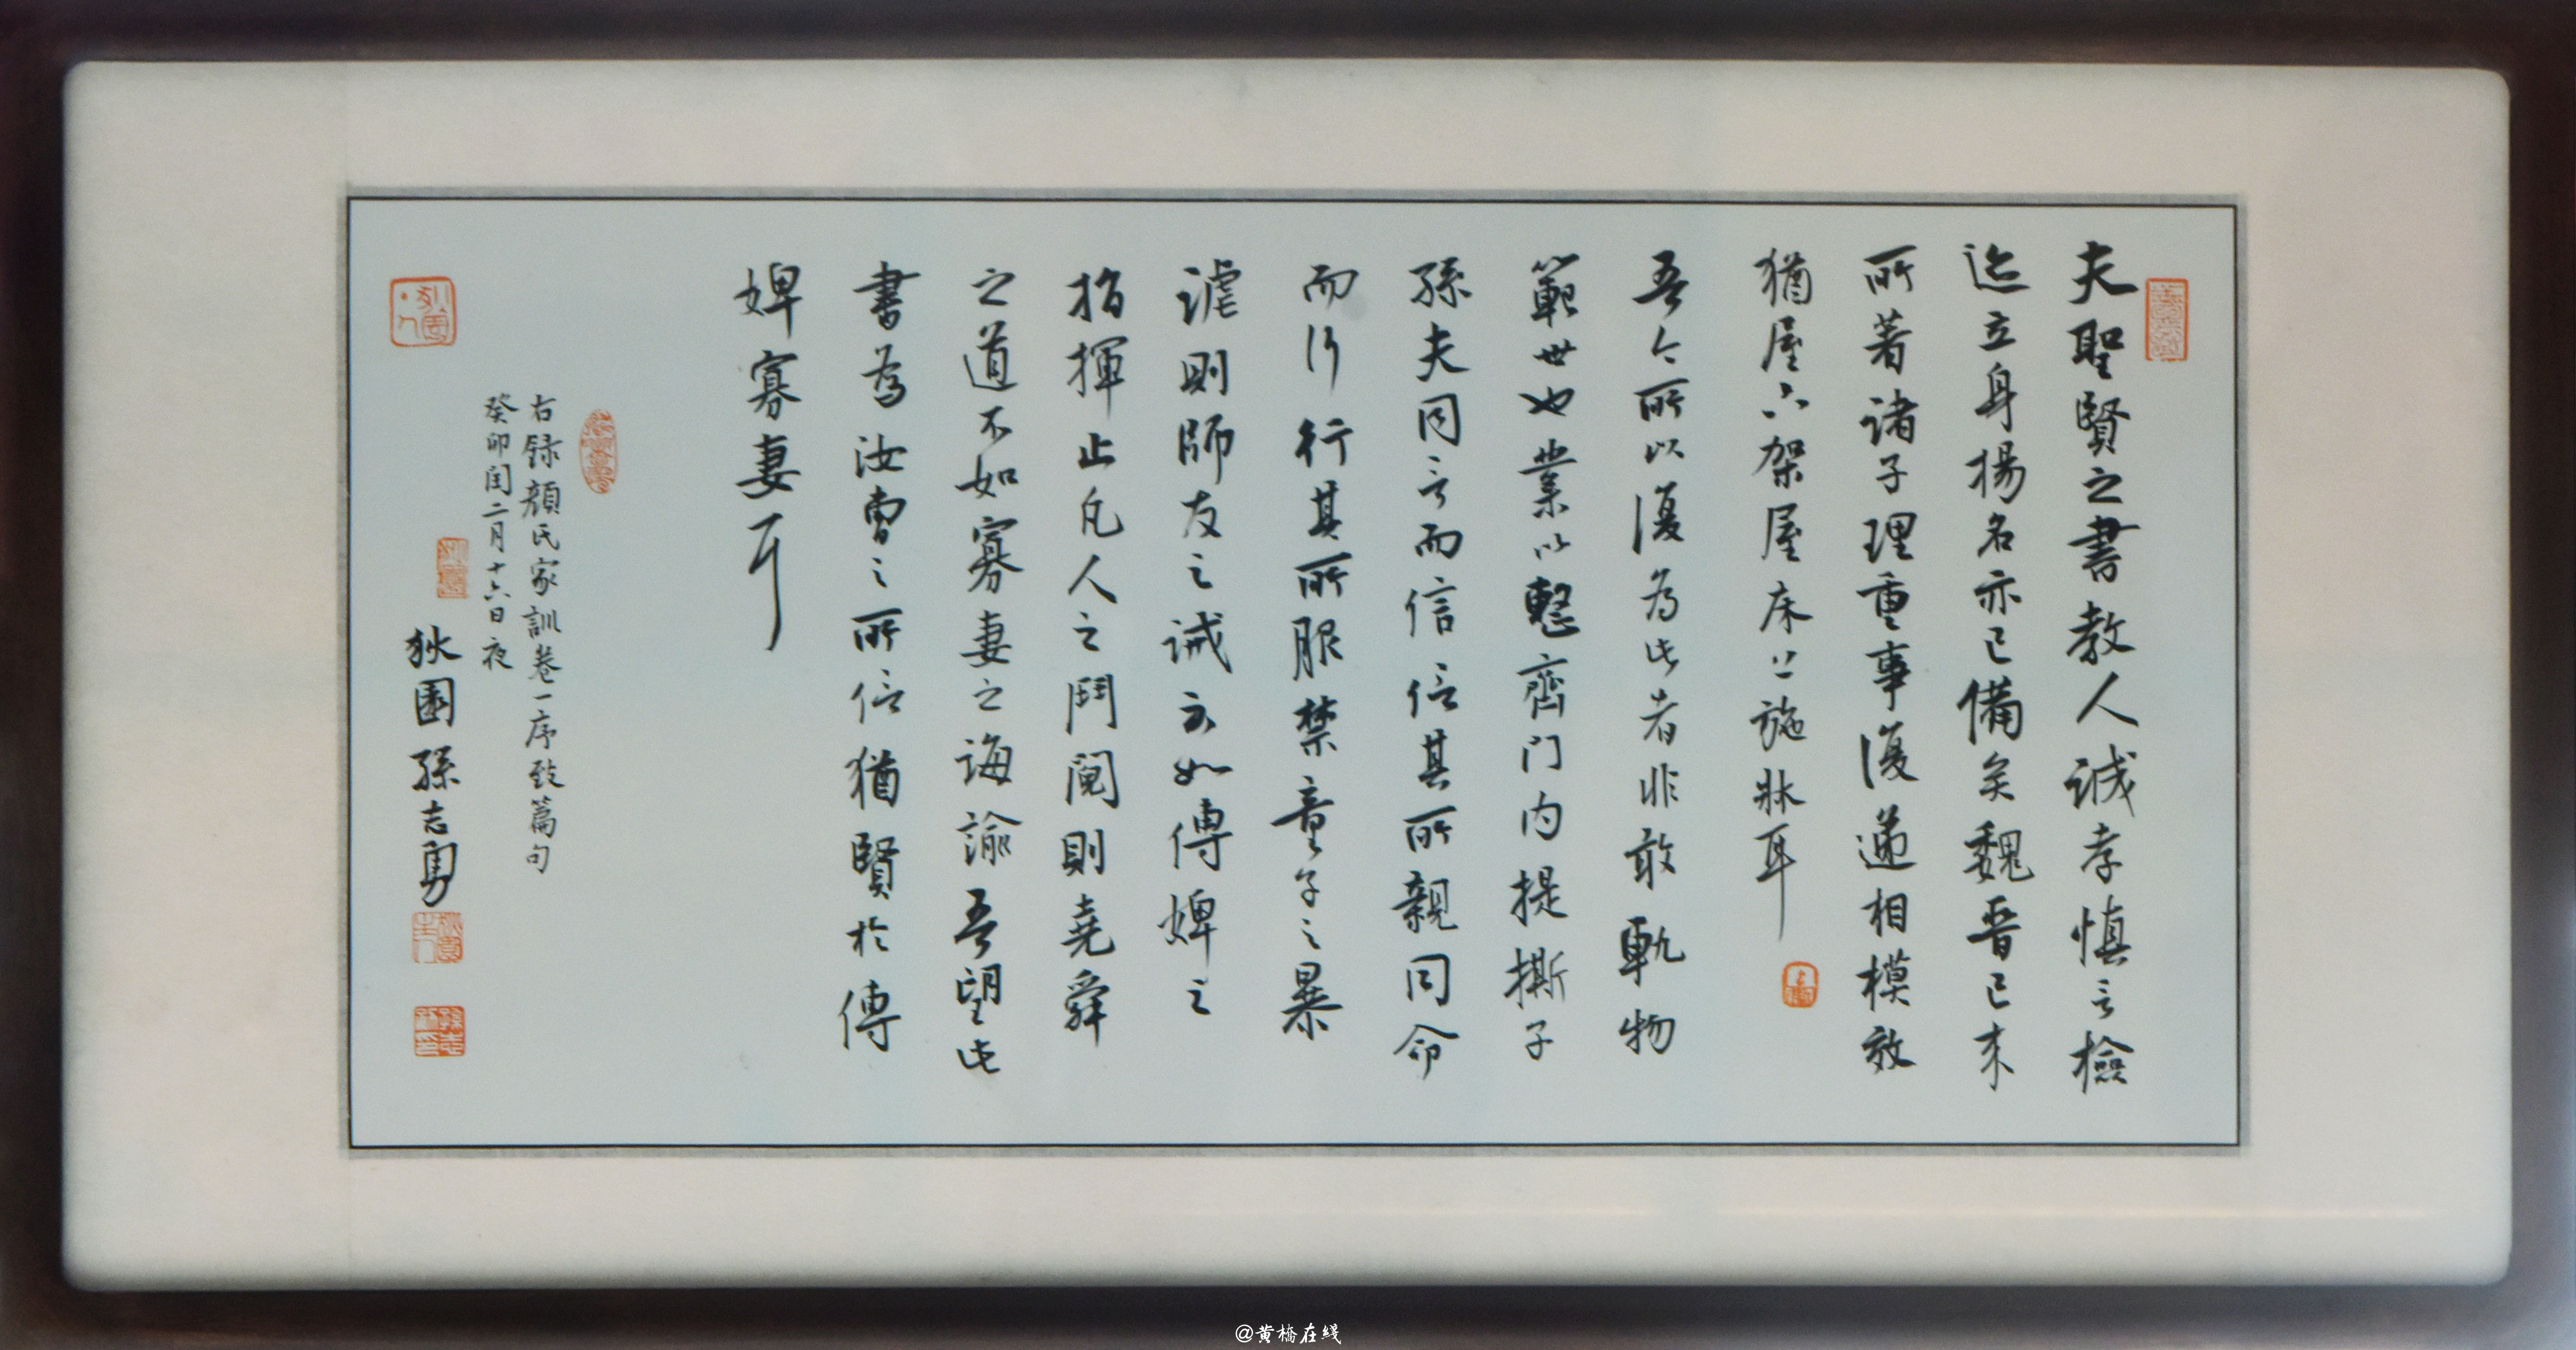 夫聖賢之書教人誠孝慎言檢
迹立身揚名亦已備矣魏晉已来
所著諸子理重事復遞相模效
猶屋下架屋床上施牀耳
吾今所以復為此者非敢軌物
範世也業以整齊门内提撕子
孫夫同言而信信其所親同命
而行行其所服禁童子之暴
謔則師友之誡不如傅婢之
指揮止凡人之鬥鬩則堯舜
之道不如寡妻之誨諭吾望此
書為汝曹之所信猶賢於傅
婢寡妻耳
右録顏氏家訓卷一序致篇句
癸卯閏二月十六日夜
狄園孫志勇
@黄橋在綫